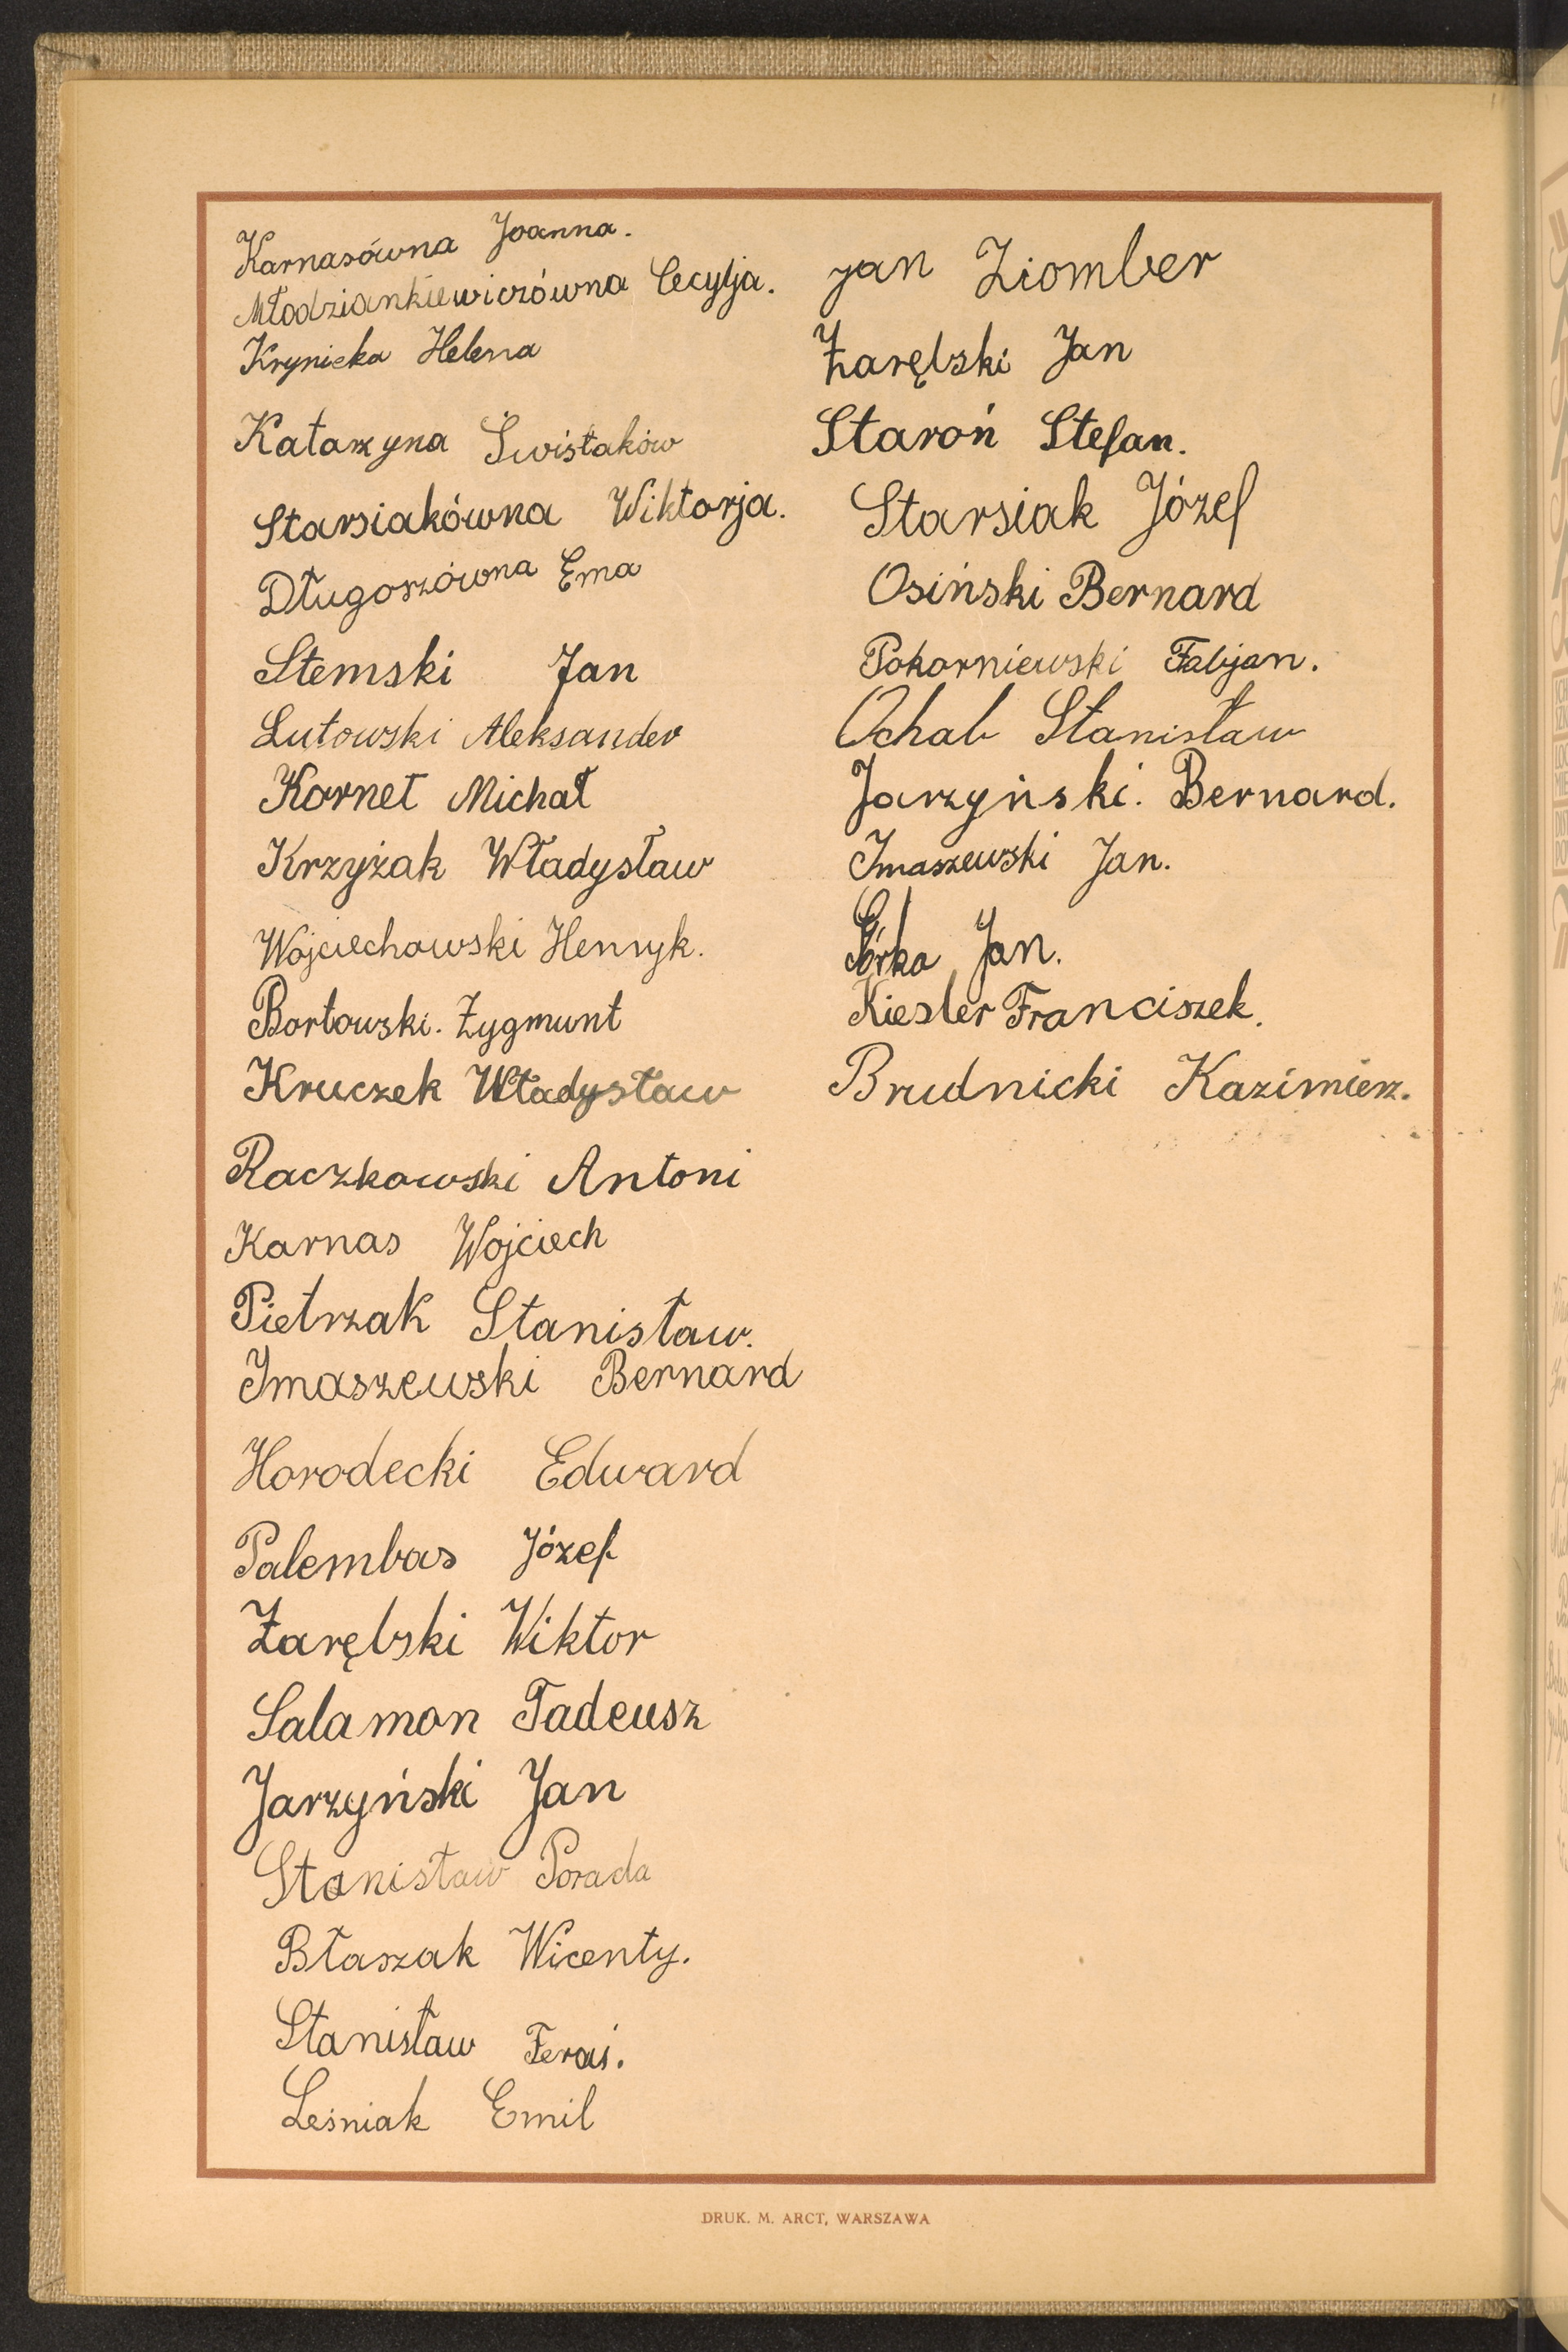 Karnasówna Joanna.
Młodziankiewiczówna Cecylja.
Krynicka Helena
Katarzyna Świstaków
Starsiakówna Wiktorja.
Długoszówna Ema
Stemski Jan
Lutowski Aleksander
Kornet Michał
Krzyżak Władysław
Wojciechowski Henryk.
Bortowski. Zygmunt
Kruczek Władysław
Raczkowski Antoni
Karnas Wojciech
Pietrzak Stanisław.
Imaszewski Bernard
Horodecki Edward
Palembas Józef
Zarębski Wiktor
Salamon Tadeusz
Jarzyński Jan
Stanisław Porada
Błaszak Wicenty.
Stanisław Feraś.
Leśniak Emil
Jan Ziomber
Zarębski Jan
Staroń Stefan.
Starsiak Józef
Osiński Bernard
Pokorniewski Fabjan.
Ochab Stanisław
Jarzyński. Bernard.
Imaszewski Jan.
Górka Jan.
Kiesler Franciszek.
Brudnicki Kazimierz.
DRUK. M. ARCT, WARSZAWA